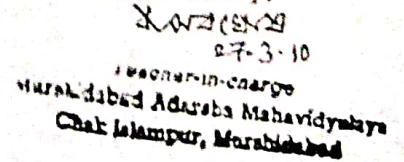 27-3-10
Teacher-in-charge
Murshidabad Adarsha Mahavidyalaya
Chak Islampur, Murshidabad